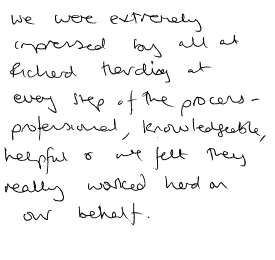 we were extremely
impressed by all at
Richard Harding at
every step of the process -
professional, knowledgeable,
helpful & we felt they
really worked hard on
our behalf.